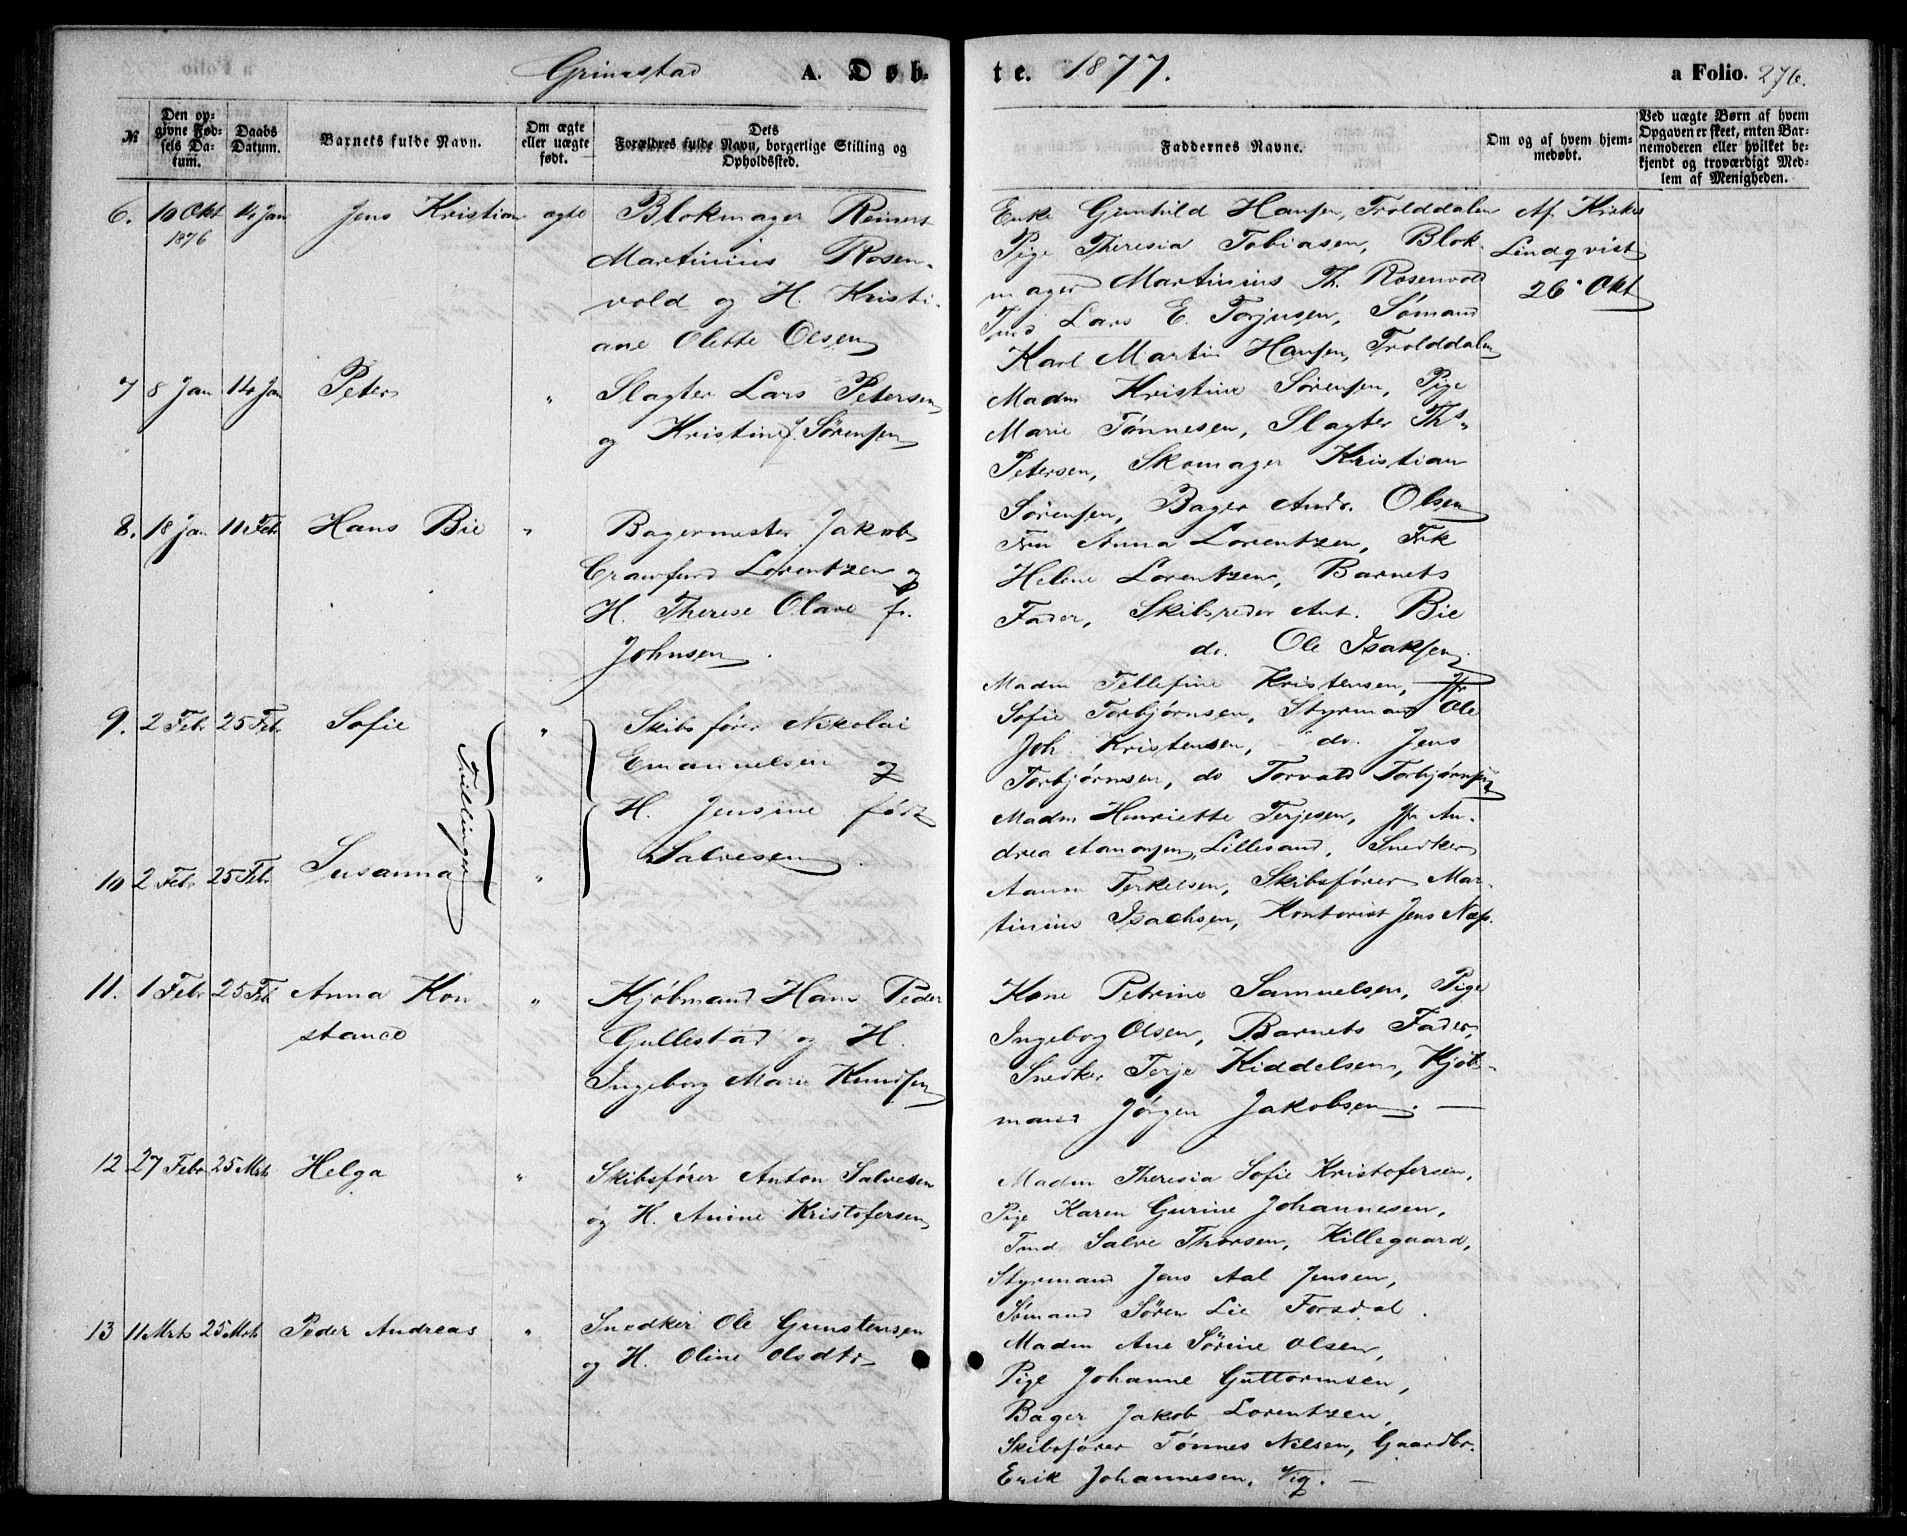 Grimstad A. Døb-
te. 1877. a Folio. 276.
№
Den op-
givne Fød-
sels Da-
tum.
Daabs
Datum.
Barnets fulde Navn.
Om ægte
eller uægte
født.
Dets
Forældres fulde Navn, borgerlige Stilling og
Opholdssted.
Faddernes Navne.
Om og af hvem hjem-
medøbt.
Ved uægte Børn af hvem
Opgaven er skeet, enten Bar-
nemoderen eller hvilket be-
kjendt og troværdigt Med-
lem af Menigheden.
6. 10 Okt 14 Jan Jens Kristian ægte Blokmager Reinert
1876
Martinius Rosen-
vold og H. Kristi-
ane Olette Olsen
Enke Gunhild Hansen, Trolddalen
Pige Theresia Tobiasen, Blok-
mager Martinius Th. Rosenvold
Lars E. Torjusen, Sømand
Karl Martin Hansen, Trolddalen
Af Kirkes
Lindqvist
26 Okt
7 8 Jan 14 Jan Peter " Slagter Lars Petersen
og Kristine f. Sørensen
Madm Kristine Sørensen, Pige
Marie Tønnesen, Slagter Ths
Petersen, Skomager Kristian
Sørensen, Bager Andr. Olsen
8. 18 Jan 11 Febr Hans Bie " Bagermester Jakob
Crawfurd Lorentzen og
H. Therese Olave f.
Johnsen.
Fru Anna Lorentzen, Frk
Helene Lorentzen, Barnets
Fader, Skibsreder Ant. Bie
do. Ole Isaksen
9. 2 Febr 25 Febr Sofie " Skibsfører Nikolai
Emanuelsen og
H. Jensine født
Salvesen.
Tvillinger
Madm Tellefine Kristensen, Jfr
Sofie Torbjørnsen, Styrmand Ole
Joh. Kristensen, do. Jens
Torbjørnsen, do Torvald Torbjørnsen
10 2 Febr 25 Febr Susanna "
Madm Henriette Terjesen, Jfr An-
drea Aanonsen, Lillesand, Snedker
Aanon Terkelsen, Skibsfører Mar-
tinius Isachsen, Kontorist Jens Næss.
11. 1 Febr 25 Feb Anna Kon " Kjøbmand Hans Peder
stance
Gullestad og H.
Ingeborg Marie Knudsen
Kone Petrine Samuelsen, Pige
Ingeborg Olsen, Barnets Fader,
Snedker Terje Kiddelsen, Kjøb-
mand Jørgen Jakobsen. —
12 27 Febr 25 Mrts Helga " Skibsfører Anton Salvesen
og H. Anine Kristofersen
Madm Theresia Sofie Kristofersen,
Pige Karen Gurine Johannesen,
Tmd Salve Thorsen, Killegaard,
Styrmand Jens Aal Jensen,
Sømand Søren Lie Forsdal.
13 11 Mrts 25 Mrts Peder Andreas " Snedker Ole Gunstensen
og H. Oline Olsdtr
Madm Ane Sørine Olsen,
Pige Johanne Guttormsen,
Bager Jakob Lorentzen,
Skibsfører Tønnes Nilsen, Gaardbr.
Erik Johannesen, Vig. —